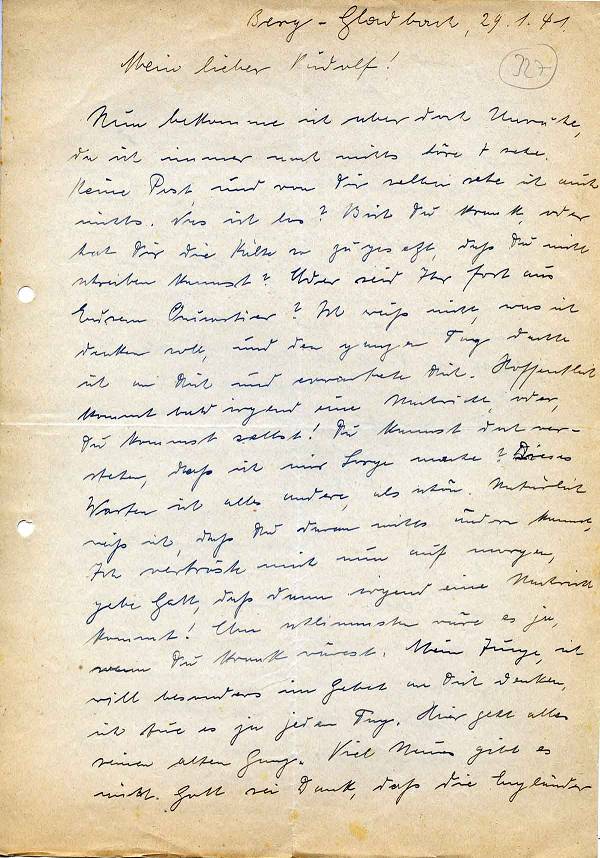 Berg-Gladbach, 29.1.41.
327
Mein lieber Rudolf!
Nun bekomme ich aber doch Unruhe,
da ich immer noch nichts höre + sehe.
Keine Post, und von Dir selber sehe ich auch
nichts. Was ist los? Bist Du krank, oder
hat Dir die Kälte so zugesetzt, daß Du nicht
schreiben kannst? Oder seid Ihr fort aus
Eurem Quartier? Ich weiß nicht, was ich
denken soll, und den ganzen Tag dachte
ich an Dich und erwartete Dich. Hoffentlich
kommt bald irgend eine Nachricht, oder,
Du kommst selbst! Du kannst doch ver-
stehen, daß ich mir Sorge mache? Dieses
Warten ist alles andere, als schön. Natürlich
weiß ich, daß Du daran nichts ändern kannst,
Ich vertröste mich nun auf morgen,
gebe Gott, daß dann irgend eine Nachricht
kommt! Am schlimmsten wäre es ja,
wenn Du krank wärest. Mein Junge, ich
will besonders im Gebet an Dich denken,
ich tue es ja jeden Tag. Hier geht alles
seinen alten Gang. Viel Neues gibt es
nicht. Gott sei Dank, daß die Engländer